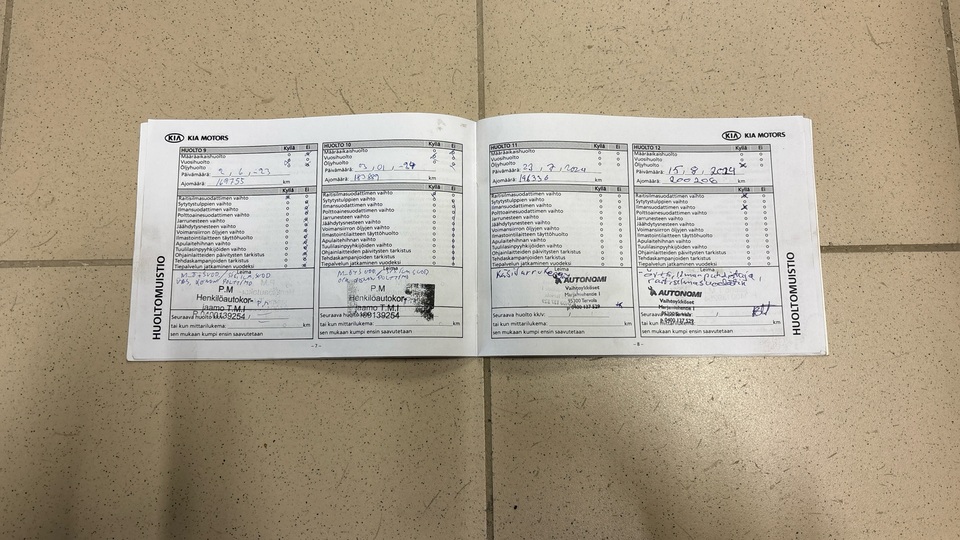 KIA KIA MOTORS
HUOLTO 9 Kyllä Ei
Määräaikaishuolto
Vuosihuolto
Öljyhuolto
Päivämäärä: 2, 6, -23
Ajomäärä: km
Kyllä Ei
Raitisilmasuodattimen vaihto
Sytytystulppien vaihto
Ilmansuodattimen vaihto
Polttoainesuodattimen vaihto
Jarrunesteen vaihto
Jäähdytysnesteen vaihto
Voimansiirron öljyjen vaihto
Ilmastointilaitteen täyttöhuolto
Apulaitehihnan vaihto
Tuulilasinpyyhkijöiden vaihto
Ohjainlaitteiden päivitysten tarkistus
Tehdaskampanjoiden tarkistus
Tiepalvelun jatkaminen vuodeksi
Leima
P.M
Henkilöautokor-
jaamo T.M.I
Seuraava huolto kk/v:
tai kun mittarilukema: km
sen mukaan kumpi ensin saavutetaan
HUOLTOMUISTIO
HUOLTO 10 Kyllä Ei
Määräaikaishuolto
Vuosihuolto
Öljyhuolto
Päivämäärä: 01, -24
Ajomäärä: km
Kyllä Ei
Raitisilmasuodattimen vaihto
Sytytystulppien vaihto
Ilmansuodattimen vaihto
Polttoainesuodattimen vaihto
Jarrunesteen vaihto
Jäähdytysnesteen vaihto
Voimansiirron öljyjen vaihto
Ilmastointilaitteen täyttöhuolto
Apulaitehihnan vaihto
Tuulilasinpyyhkijöiden vaihto
Ohjainlaitteiden päivitysten tarkistus
Tehdaskampanjoiden tarkistus
Tiepalvelun jatkaminen vuodeksi
Leima
P.M
Henkilöautokor-
jaamo T.M.I
Seuraava huolto kk/v:
tai kun mittarilukema: km
sen mukaan kumpi ensin saavutetaan
- 7 -
KIA KIA MOTORS
HUOLTO 11 Kyllä Ei
Määräaikaishuolto
Vuosihuolto
Öljyhuolto
Päivämäärä: 7, 2024
Ajomäärä: km
Kyllä Ei
Raitisilmasuodattimen vaihto
Sytytystulppien vaihto
Ilmansuodattimen vaihto
Polttoainesuodattimen vaihto
Jarrunesteen vaihto
Jäähdytysnesteen vaihto
Voimansiirron öljyjen vaihto
Ilmastointilaitteen täyttöhuolto
Apulaitehihnan vaihto
Tuulilasinpyyhkijöiden vaihto
Ohjainlaitteiden päivitysten tarkistus
Tehdaskampanjoiden tarkistus
Tiepalvelun jatkaminen vuodeksi
Leima
AUTONOMI
Vaihtoyksiköt
95300 Tervola
Seuraava huolto kk/v:
tai kun mittarilukema: km
sen mukaan kumpi ensin saavutetaan
HUOLTO 12 Kyllä Ei
Määräaikaishuolto
Vuosihuolto
Öljyhuolto
Päivämäärä: 15, 8, 2024
Ajomäärä: 200208 km
Kyllä Ei
Raitisilmasuodattimen vaihto
Sytytystulppien vaihto
Ilmansuodattimen vaihto
Polttoainesuodattimen vaihto
Jarrunesteen vaihto
Jäähdytysnesteen vaihto
Voimansiirron öljyjen vaihto
Ilmastointilaitteen täyttöhuolto
Apulaitehihnan vaihto
Tuulilasinpyyhkijöiden vaihto
Ohjainlaitteiden päivitysten tarkistus
Tehdaskampanjoiden tarkistus
Tiepalvelun jatkaminen vuodeksi
Leima
raitisilmasuodatin
AUTONOMI
Vaihtoyksiköt
p.0400 137 529
Seuraava huolto kk/v:
tai kun mittarilukema: km
sen mukaan kumpi ensin saavutetaan
- 8 -
HUOLTOMUISTIO